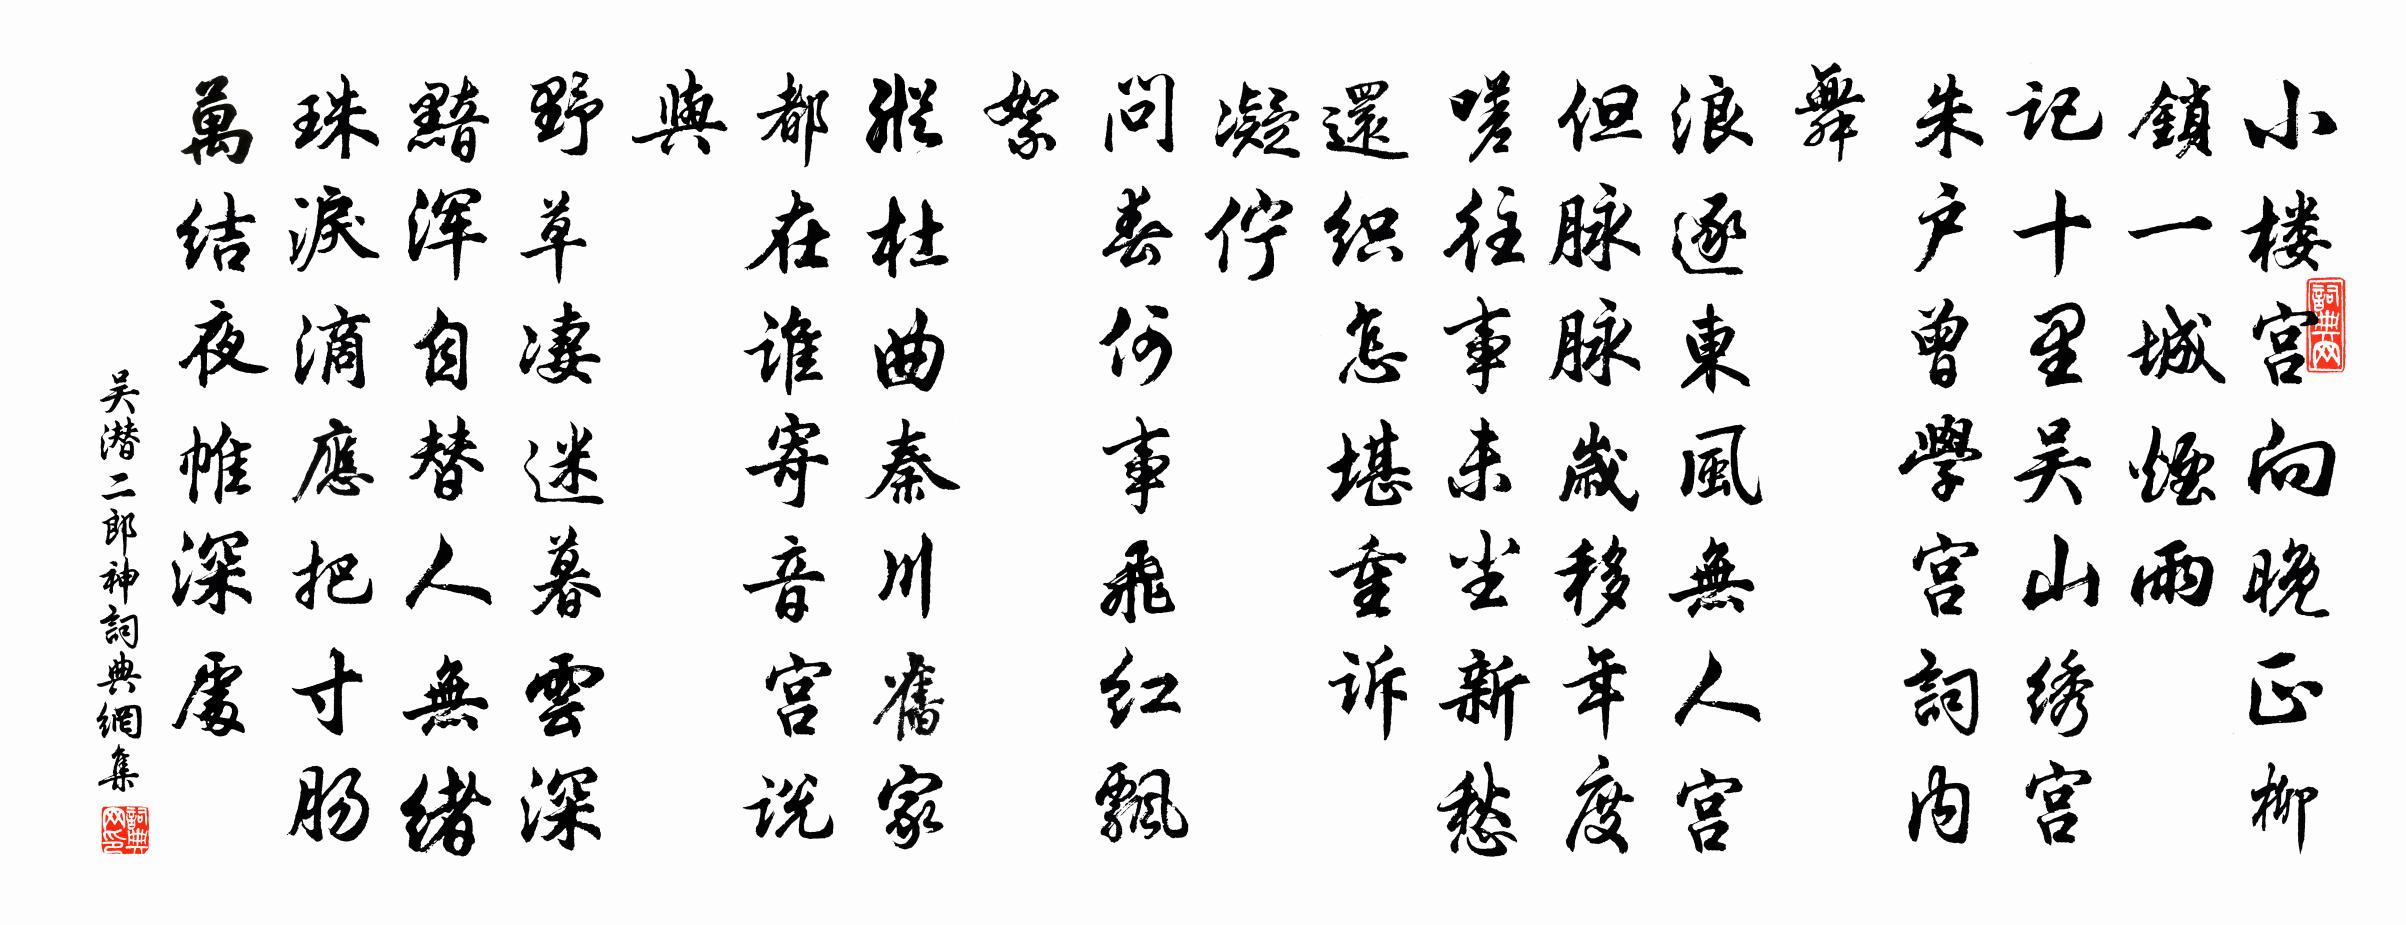 小楼宫向晚正柳
鎖一城煙雨
记十里吴山绣宫
朱户曾學宫詞内
舞
浪逐東風無人宫
但脉脉歲移年度
嗟往事未尘新愁
還织怎堪重诉
凝佇
問春何事飛红飄
絮
縱杜曲秦川舊家
都在谁寄音宫说
與
野草凄迷暮雲深
黯浑自替人無绪
珠淚滴應把寸肠
萬结夜帷深處
吴潜二郎神詞典網集
詞典网
詞典网印